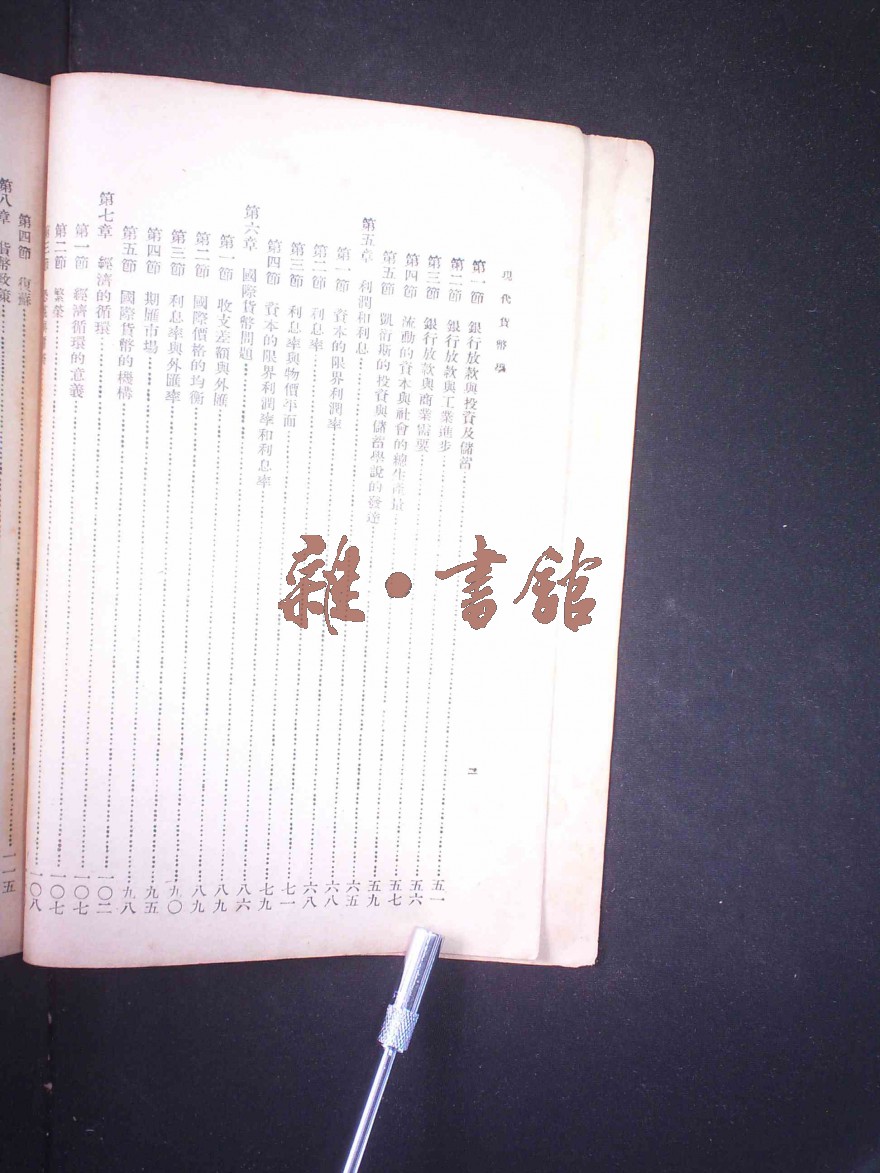 現代貨幣學
二
第一節 銀行放款與投資及儲蓄……五一
第二節 銀行放款與工業進步……五六
第三節 銀行放款與商業需要……五七
第四節 流動的資本與社會的總生產量……五九
第五節 凱衍斯的投資與儲蓄學說的發達……六五
第五章 利潤和利息……六八
第一節 資本的限界利潤率……六八
第二節 利息率……七一
第三節 利息率與物價平面……七九
第四節 資本的限界利潤率和利息率……八六
第六章 國際貨幣問題……八九
第一節 收支差額與外匯……八九
第二節 國際價格的均衡……九〇
第三節 利息率與外匯率……九五
第四節 期匯市場……九八
第五節 國際貨幣的機構……一〇二
第七章 經濟的循環……一〇七
第一節 經濟循環的意義……一〇七
第二節 繁榮……一〇八
第三節
第四節 復蘇……一一五
第八章 貨幣政策
雜·書館